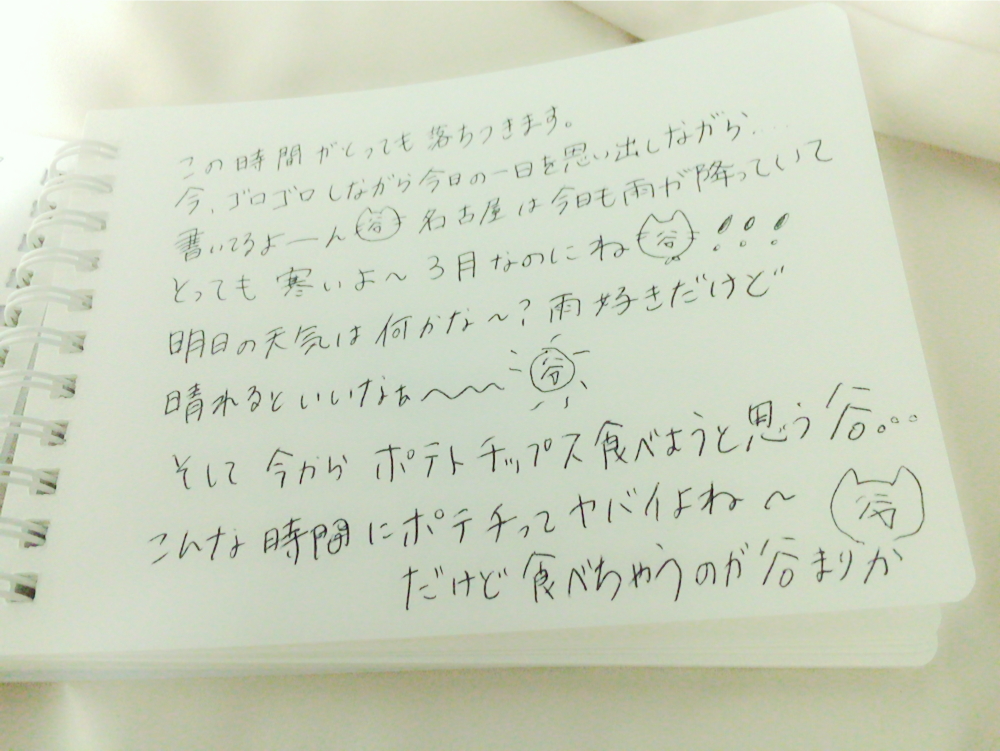 この時間がとっても落ちつきます。
今、ゴロゴロしながら今日の一日を思い出しながら.....
書いてるよーん谷 名古屋は今日も雨が降っていて
とっても寒いよ～3月なのにね谷!!!
明日の天気は何かな～?雨好きだけど
晴れるといいなぁ～～～谷
そして今からポテトチップス食べようと思う谷...
こんな時間にポテチってヤバイよね～谷
だけど食べちゃうのが谷まりか